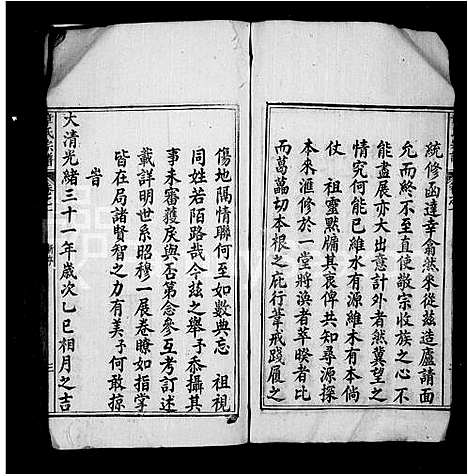 統修函達幸翕然來從茲造廬請面
允而終不至直使敬宗收族之心不
能盡展亦大出意計外者然冀望之
情究何能已維水有源維木有本倘
仗 祖靈默牖其衷俾共知尋源探
本來滙修於一堂將渙者萃睽者比
而葛藟切本根之庇行葦戒踐履之
傷地隔情聯何至如數典忘 祖視
同姓若陌路哉今茲之舉予忝攝其
事未審獲戾與否第念參互考訂述
載詳明世系昭穆一展卷瞭如指掌
皆在局諸賢智之力有美予何敢掠
旹
大清光緒三十一年歲次乙巳相月之吉
氏宗譜
卷之一
新序
三